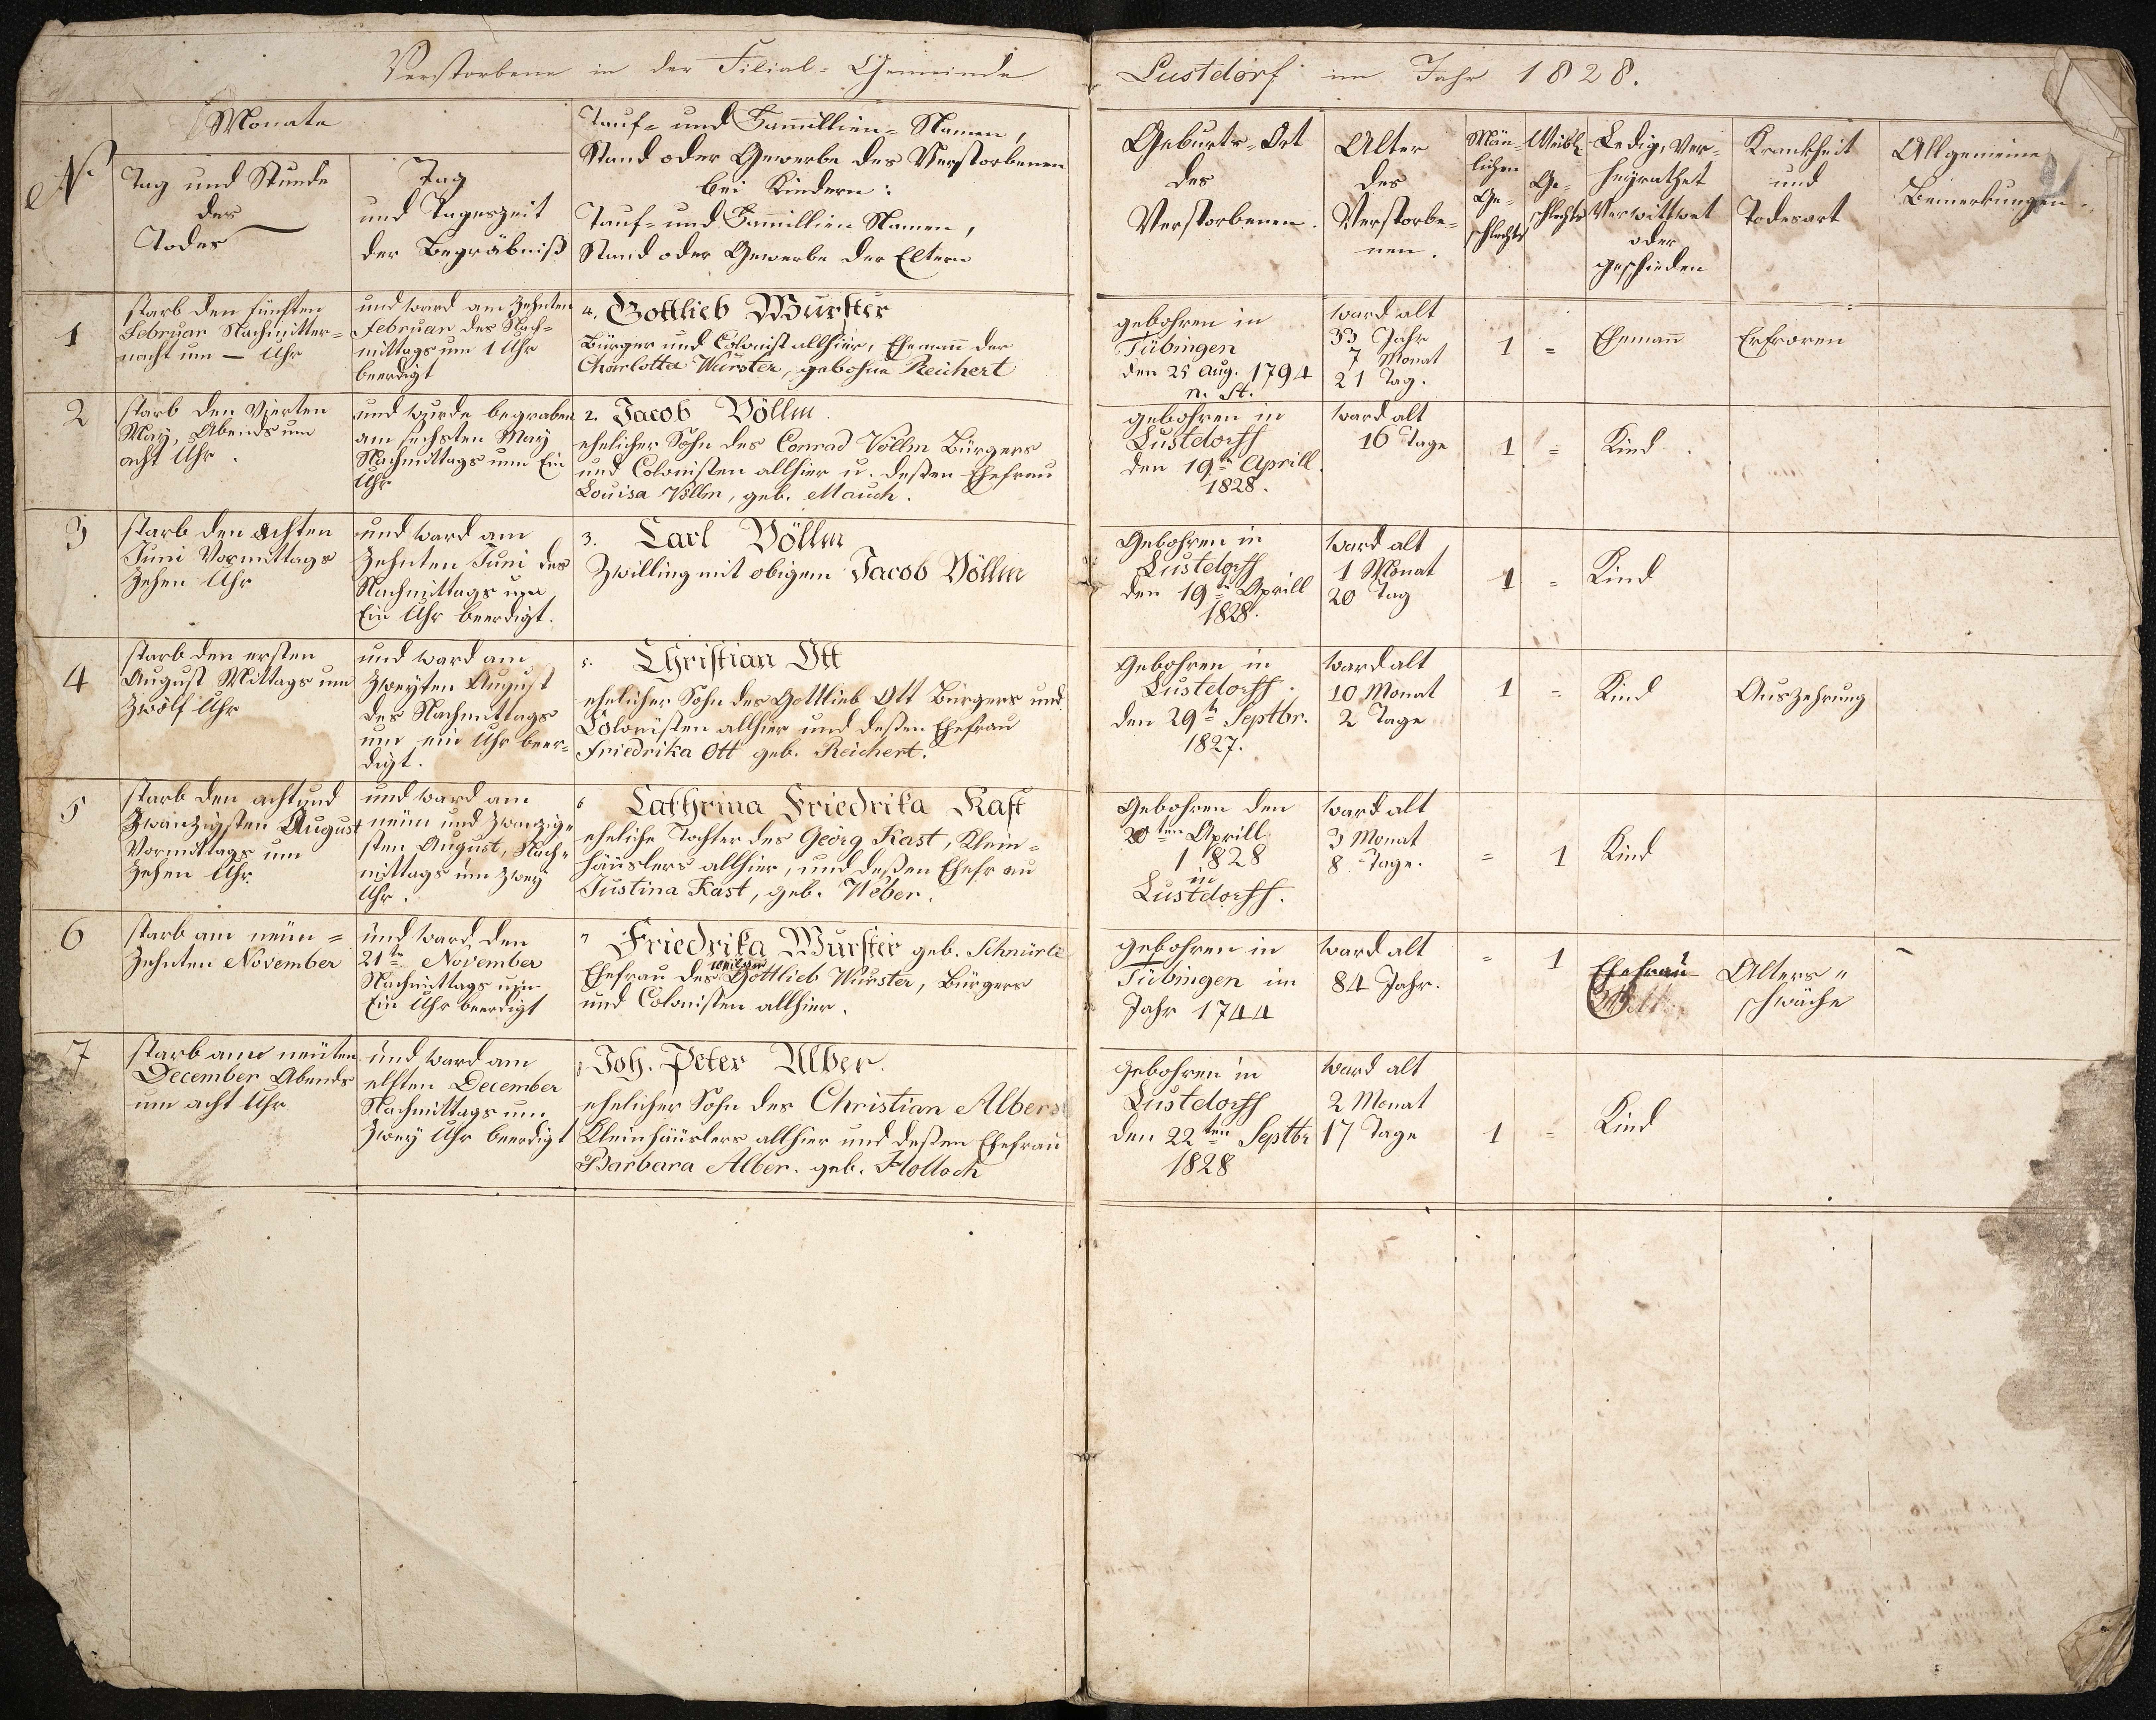 Verstorbene in der Filial-Gemeinde Lustdorf im Jahr 1828.
Monate
N
Tag und Stunde
des
Todes
Tag
und Tageszeit
der Begräbniß
Tauf- und Fam̅illien-Namen,
Stand oder Gewerbe des Verstorbenen
bei Kindern:
Tauf- und Fam̅illien Namen,
Stand oder Gewerbe der Eltern
Geburts-Ort
des
Verstorbenen.
Alter
des
Verstorbe-
nen.
Män-
lichen
Ge-
schlechts
Weibl.
Ge-
schlechts
Ledig, Ver-
heyrathet
Verwittwet
oder
geschieden
Krankheit
und
Todesart
Allgemeine
Bemerkungen.
1
starb den fünften
Februar Nachmitter-
nacht um — Uhr
und ward am Zehnten
Februar des Nach-
mittags um 1 Uhr
beerdigt
Gottlieb Wurster
Bürger und Colonist allhier, Ehemañ der
Charlotta Wurster, gebohne Reichert
gebohren in
Tübingen
den 25 Aug. 1794
n. St.
ward alt
33 Jahr
7 Monat
21 Tag.
1
=
Ehemañ
Erfroren
2
starb den Vierten
May, Abends um
acht Uhr.
und wurde begraben
am sechsten May
Nachmittags um Ein
Uhr
2. Jacob Völlm.
ehelicher Sohn des Conrad Völlm Bürgers
und Colonisten allhier u. deßen Ehefrau
Louisa Völlm, geb. Mauch.
gebohren in
Lustdorff
den 19t Aprill.
1828.
ward alt
16 Tage
1
=
Kind.
3
starb den achten
Juni Vormittags
Zehen Uhr
und ward am
Zehnten Juni des
Nachmittags um
Ein Uhr beerdigt.
3. Carl Völlm
Zwilling mit obigem Jacob Völlm
Gebohren in
Lustdorff
den 19t Aprill
1828.
ward alt
1 Monat
20 Tag
1
=
Kind
4
starb den ersten
August Mittags um
Zwölf Uhr
und ward am
Zweyten August
des Nachmittags
um ein Uhr beer-
digt.
5. Christian Ott
ehelicher Sohn des Gottlieb Ott Bürgers und
Colonisten allhier und deßen Ehefrau
Friedrika Ott geb. Reichert.
Gebohren in
Lustdorff.
den 29t Septbr.
1827.
ward alt
10 Monat
2 Tage
1
=
Kind
Auszehrung
5
starb den acht und
Zwanzigsten August
Vormittags um
Zehen Uhr.
und ward am
neün und Zwanzig-
sten August, Nach-
mittags um Zwey
Uhr.
6 Cathrina Friedrika Kast
eheliche Tochter des Georg Kast, Klein-
häuslers allhier, und deßen Ehefrau
Justina Kast, geb. Weber.
Gebohren den
20ten Aprill
1828
in
Lustdorff.
ward alt
3 Monat
8 Tage.
=
1
Kind
6
starb am neün=
Zehnten November
und ward den
21t November
Nachmittags um
Ein Uhr beerdigt
Friedrika Wurster geb. Schnürle
Ehefrau des weiland Gottlieb Wurster, Bürgers
und Colonisten allhier.
gebohren in
Tübingen im
Jahr 1744
ward alt
84 Jahr.
=
1
Ehefrau
Alters-
schwäche
7
starb am neüten
December Abends
um acht Uhr
und ward am
elften December
Nachmittags um
Zwey Uhr beerdigt
Joh. Peter Alber.
ehelicher Sohn des Christian Albers
Kleinhäuslers allhier und deßen Ehefrau
Barbara Alber. geb. Holloch
gebohren in
Lustdorff
den 22ten Septbr
1828
ward alt
2 Monat
17 Tage
1
=
Kind